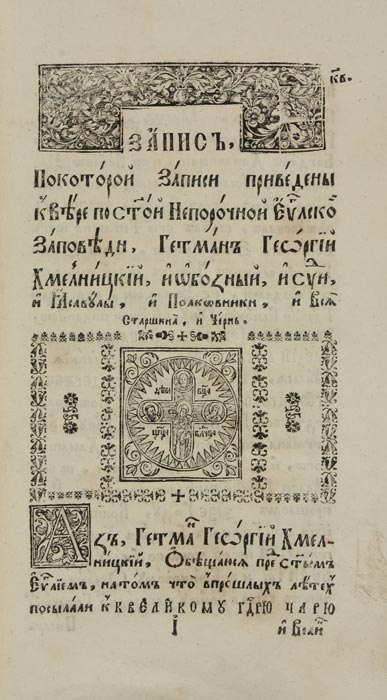 к҃в.
ЗА́ПИСЪ,
Покото́рой За́писи приве́дены
к̾ Вѣ́ре по ст҃ой Непоро́чной Еѵ҃лско
За́повѣди, Ге́тманъ Гео́ргїй
Хмелни́цкїй, и ѡбо́зный, и суⷣи,
и Ясаулы, и Полко́вники, и Вся
Старшина, и Чернь.
А́зъ, Ге́тмаⷩ Гео́ргїй Хмел-
ни́цкїй, Ѡбѣща́юся преⷣ ст҃ымъ
Еѵ҃лїемъ, на то́мъ что в̾пре́шлыхъ лѣ́техъ
посыла́ли к̾ вели́кому гдⷭ҇рю царю
І
и Вели